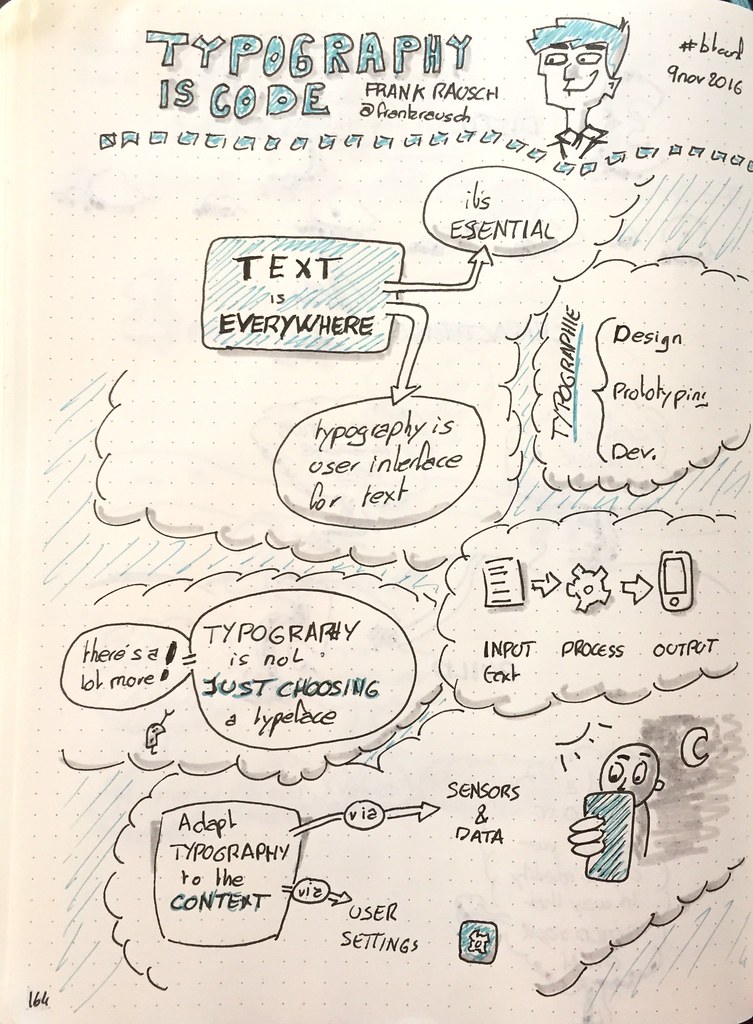 TYPOGRAPHY
IS CODE
FRANK RAUSCH
@frankrausch
#btconf
9 nov 2016
TEXT
is
EVERYWHERE
it's
ESSENTIAL
typography is
user interface
for text
TYPOGRAPHIE
Design
Prototyping
Dev.
INPUT
text
PROCESS
OUTPUT
there's a
lot more!
TYPOGRAPHY
is not
JUST CHOOSING
a typeface
Adapt
TYPOGRAPHY
to the
CONTEXT
via
SENSORS
&
DATA
via
USER
SETTINGS
164